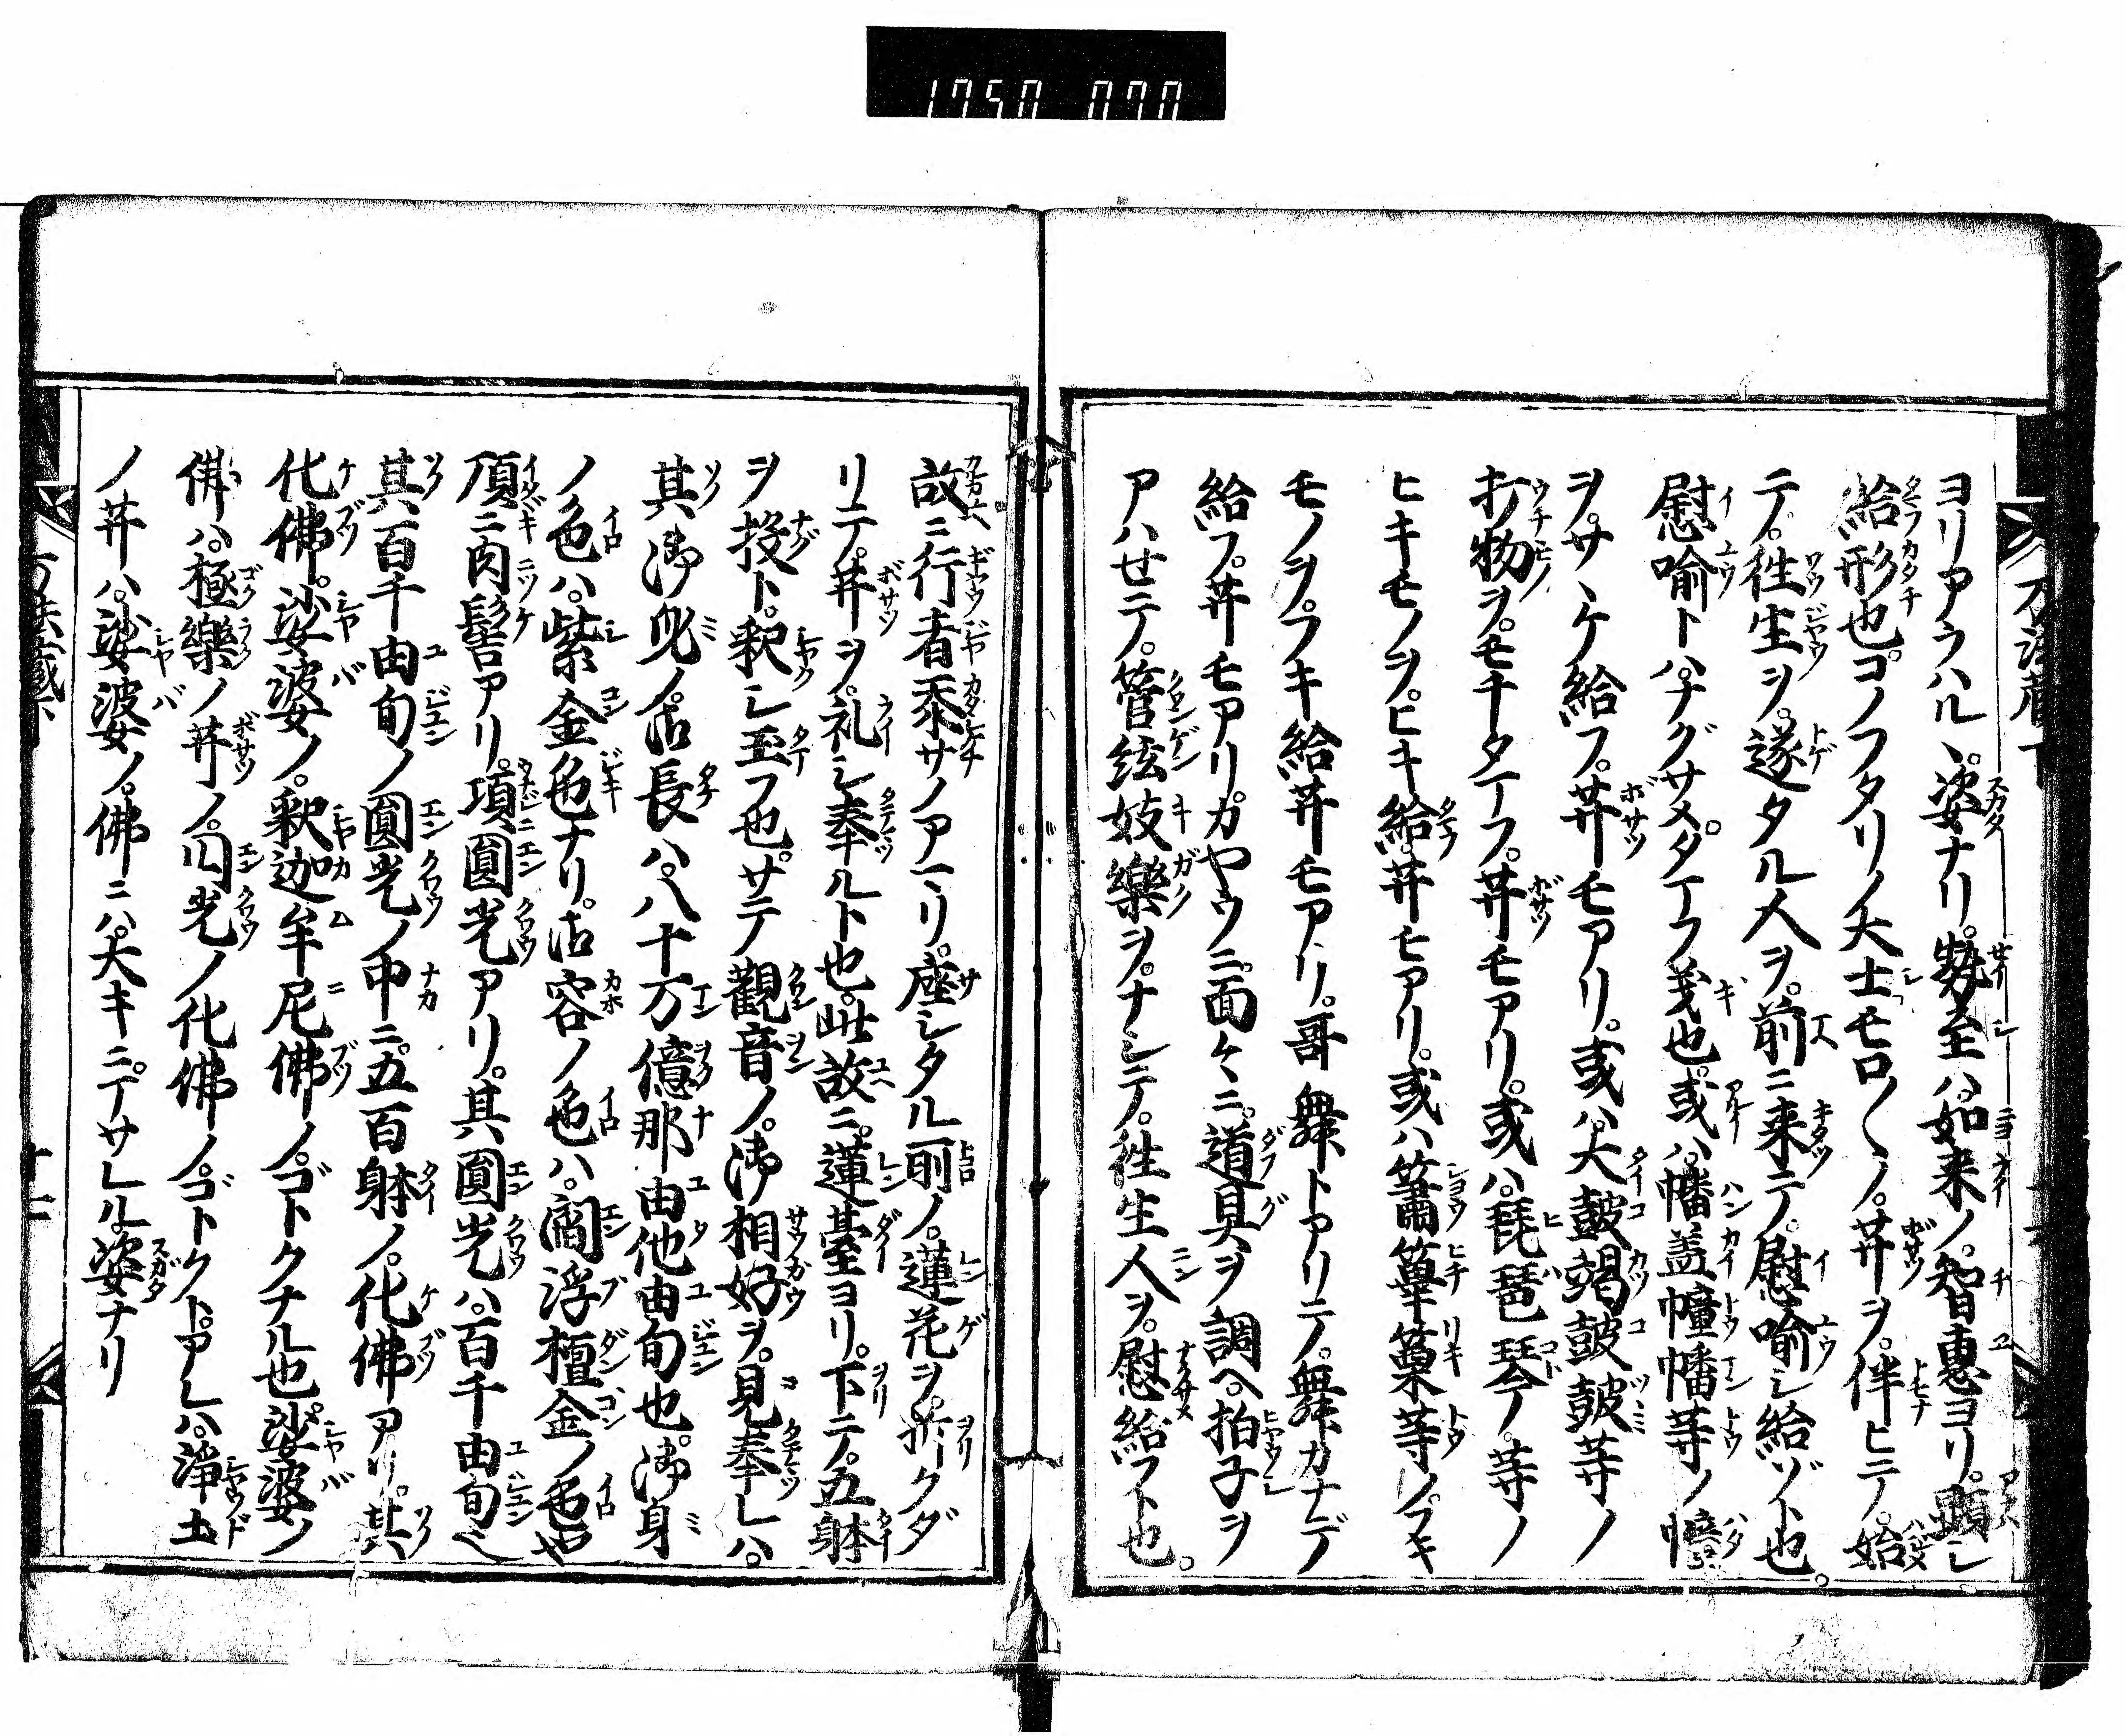 1750 070
ヨリアラハルヽ。姿ナリ。勢至ハ。如来ノ。智恵ヨリ。顕シ
給形也。コノフタリノ大士モロ〱ノ。菩薩ヲ。伴ヒテ。始
テ。徃生ヲ。遂タル人ヲ。前ニ来テ。慰喩シ給ゾト也。
慰喩トハ。ナグサメタマフ義也。或ハ。幡蓋幢幡等ノ幢
ヲ。サヽケ給フ。菩薩モアリ。或ハ。大鼓羯鼓鼓等ノ
打物ヲ。モチタマフ。菩薩モアリ。或ハ。琵琶琴等ノ
ヒキモノヲ。ヒキ給。菩薩モアリ。或ハ簫篳篥等ノ。フキ
モノヲ。フキ給菩薩モアリ。哥舞トアリテ。舞カナデ
給フ。菩薩モアリ。カヤウニ。面々ニ。道具ヲ調ヘ。拍子ヲ
アハセテ。管絃妓樂ヲ。ナシテ。徃生人ヲ。慰給フト也。
故ニ行者忝サノアマリ。座シタル所ノ。蓮花ヲ。折クダ
リテ。菩薩ヲ。礼シ奉ルト也。此故ニ。蓮臺ヨリ。下テ。五躰
ヲ投ト。釈シ玉フ也。サテ觀音ノ。御相好ヲ。見奉レハ。
其御皃ノ。長ハ。八十万億那由他由旬也。御身
ノ色ハ。紫金色ナリ。容ノ色ハ。閻浮檀金ノ色也
頂ニ肉髻アリ。項圓光アリ。其圓光ハ。百千由旬也
其百千由旬ノ圓光ノ中ニ。五百躰ノ。化佛アリ。其
化佛。娑婆ノ。釈迦牟尼佛ノ。ゴトクナル也。娑婆ノ
佛ハ。極樂ノ菩薩ノ。円光ノ化佛ノ。ゴトクト。アレハ。淨土
ノ菩薩ハ。娑婆ノ。佛ニハ。大キニ。マサレル。姿ナリ